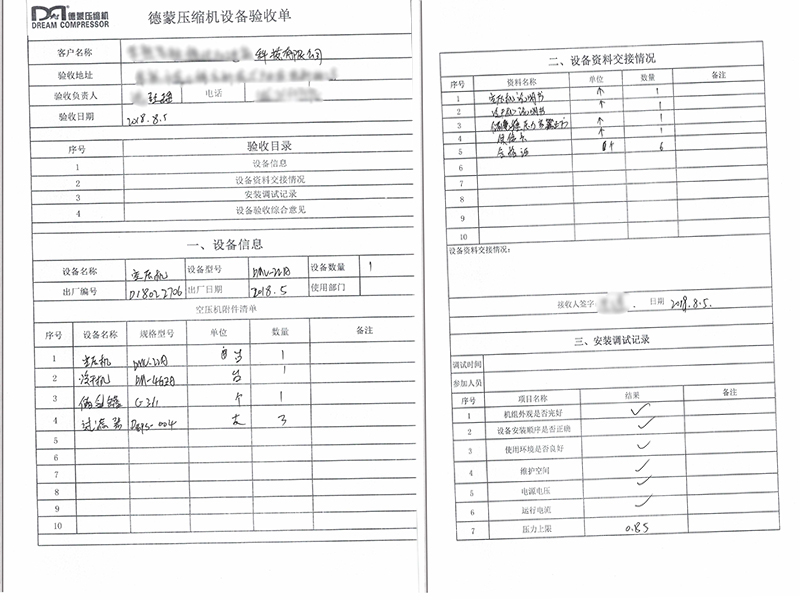 德蒙压缩机
DREAM COMPRESSOR
德蒙压缩机设备验收单
客户名称 科技有限公司
验收地址
验收负责人 电话
验收日期 2018.8.5
序号 验收目录
1 设备信息
2 设备资料交接情况
3 安装调试记录
4 设备验收综合意见
一、设备信息
设备名称 空压机 设备型号 DMV-22A 设备数量 1
出厂编号 D18022706 出厂日期 2018.5 使用部门
空压机附件清单
序号 设备名称 规格型号 单位 数量 备注
1 空压机 DMV-22A 台 1
2 冷干机 台 1
3 储气罐 个 1
4 过滤器 支 3
5
6
7
8
9
10
二、设备资料交接情况
序号 资料名称 单位 数量 备注
1 空压机说明书 个 1
2 说明书 个 1
3 个 1
4 保修卡 个 1
5 合格证 个 6
6
7
8
9
10
设备资料交接情况：
接收人签字 日期 2018.8.5.
三、安装调试记录
调试时间
参加人员
序号 项目名称 结果 备注
1 机组外观是否完好 ✓
2 设备安装顺序是否正确 ✓
3 使用环境是否良好 ✓
4 维护空间 ✓
5 电源电压 ✓
6 运行电流 ✓
7 压力上限 0.85